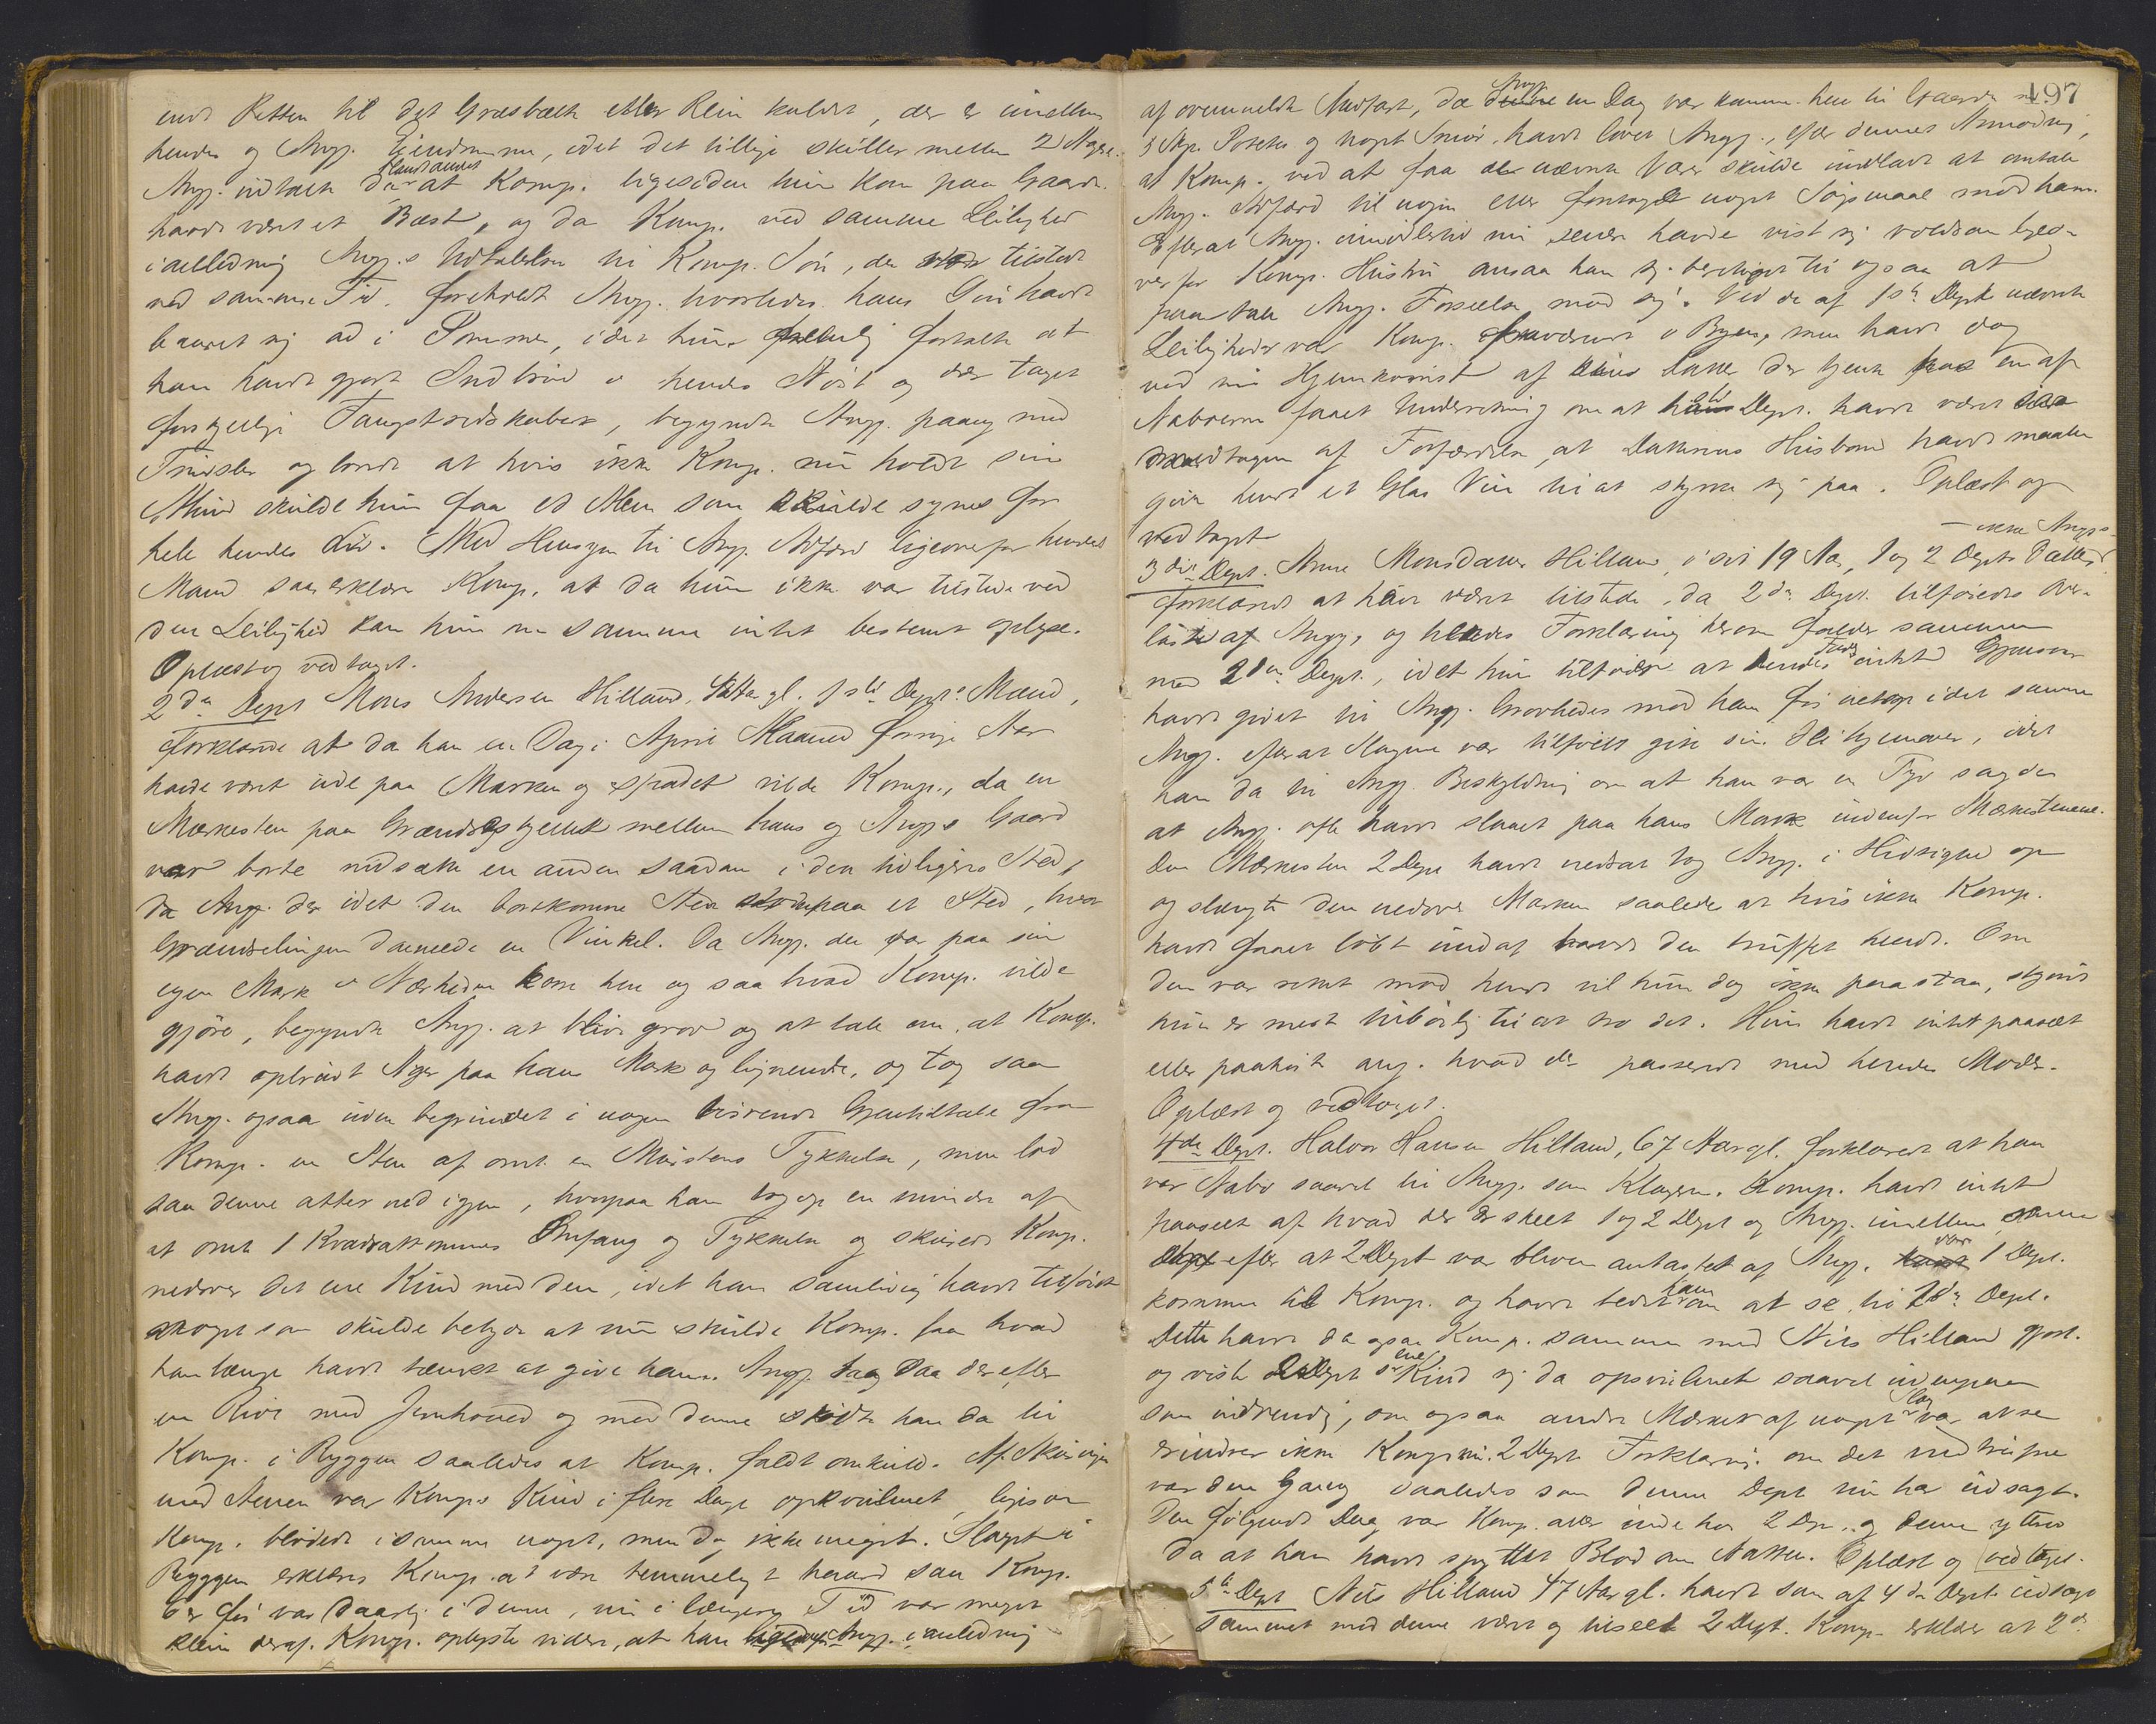 endt Retten til det Græsbælte eller Rein kaldet, der er imellem
hendes og Angj. Eiendomme, idet det tillige skiller mellem 2 Agre.
Angj. udtalte da blandt andet at Komp. ligesiden hun kom paa Gaarden
havde været et Bæst, og da Komp. ved samme Leilighed
i anledning Angj.s Udtalelser til Komp. Søn, der var tilstede
ved samme Tid, foreholdt Angj. hvorledes hans Søn havde
baaret sig ad i Sommer, idet hun forklarede at
han havde gjort Indbrud i hendes Nøst og der taget
forskjellige Fangstredskaber, begyndte Angj. paany med
Trudsler og lovede at hvis ikke Komp. nu holdt sin
Mund skulde hun faa et Men som skulde synes for
hele hendes Liv. Med Hensyn til Angj. Adfærd ligeoverfor hendes
Mand saa erklærer Komp. at da hun ikke var tilstede ved
den Leilighed kan hun om samme intet bestemt oplyse.
Oplæst og vedtaget.
2den Dept Mons Andersen Hilland, gl. 1ste Depts Mand,
forklarede at da han en Dag i April Maaned forrige Aar
havde været ude paa Marken og spadet vilde Komp., da en
Merkesten paa Grændseskjellet mellem hans og Angj.s Gaard
var borte nedsætte en anden saadan i den tidligeres Sted,
da Angj. der idet den bortkomne Sten stod paa et Sted, hvor
Grændselinjen dannede en Vinkel. Da Angj. der var paa sin
egen Mark i Nærheden kom hen og saa hvad Komp. vilde
gjøre, begyndte Angj. at blive grov og at tale om, at Komp.
havde opbrudt Ager paa hans Mark og lignende, og tog saa
Angj. ogsaa uden begrundet i nogen Gjentiltale fra
Komp. en Sten af omt. en Murstens Tykkelse, men lod
saa denne atter ned igjen, hvorpaa han tog op en mindre af
at omt. 1 Kvadrattommes Omfang og Tykkelse og skurede Komp.
nedover det ene Kind med den, idet han samtidig havde tilføiet
noget som skulde betyde at nu skulde Komp. faa hvad
han længe havde tænkt at give ham. Angj. tog saa derefter
en Rive med Jernhoved og med denne stødte han da til
Komp. i Ryggen saaledes at Komp. faldt omkuld. Af Skuringen
med Stenen var Komps Kind i flere Dage opsvulmet, ligesom
Komp. blødede i samme noget, men dog ikke meget. Slaget i
Ryggen erklærer Komp. at være temmelig haardt saa Komp.
der før var daarlig i denne, nu i længere Tid var meget
klein deraf. Komp. oplyste videre, at han Angj. i anledning
497
af ovenmeldte Medfart, da Angj. en Dag var kommen hen til Gaarden med
5 Skp. Poteter og noget Smør, havde lovet Angj., efter dennes Anmodning,
at Komp. ved at faa de nævnte Varer skulde undlade at omtale
Angj. Adfærd til nogen eller foretage noget Søgsmaal mod ham.
Efterat Angj. imidlertid nu senere havde vist sig voldsom ligeo-
ver for Komps Hustru ansaa han sig berettiget til ogsaa at
paatale Angj. Forseelse mod sig. Ved de af 1ste Dept nævnte
Leiligheder var Komp. fraværende i Byen, men havde dog
ved sin Hjemkomst af sin Datter der tjente hos en af
Naboerne faaet Underretning om at 1ste Dept. havde været saa
medtagen af Forfærdelse, at Datterens Husbond havde maattet
give hende et Glas Vin til at styrke sig paa. Oplæst og
vedtaget
3die Dept. Anne Monsdatter Hilland, i sit 19 Aar, 1 og 2 Depts Datter – ikke Angjs
forklarede at have været tilstede, da 2den Dept. tilføiedes Over-
last af Angj., og hendes Forklaring herom falder sammen
med 2den Dept., idet hun tilføier at hendes Fader intet Gjensvar
havde givet til Angj. Grovheder mod ham før netop i det samme
Angj. efterat Slagene var tilføiet gik sin Vei hjemover, idet
han da til Angj. Beskyldning om at han var en Tyv sagde
at Angj. ofte havde slaaet paa hans Mark indenfor Merkestenene.
Den Merkesten 2 Dept havde nedsat tog Angj. i Hidsighed op
og slængte den nedover Marken saaledes at hvis ikke Komp.
havde faaet løbt undaf havde den truffet hende. Om
den var rettet mod hende vil hun dog ikke paastaa, skjønt
hun er mest tilbøielig til at tro det. Hun havde intet paaseet
eller paahørt ang. hvad der passerede med hendes Moder.
Oplæst og vedtaget.
4de Dept. Halvor Hansen Hilland, 67 Aar gl. forklarede at han
var Nabo saavel til Angj. som Klageren. Komp. havde intet
paaseet af hvad der er skeet 1 og 2 Dept og Angj. imellem, men
efter at 2 Dept var bleven antastet af Angj. var 1 Dept.
kommen til Komp. og havde bedt ham om at se til 2den Dept.
Dette havde da ogsaa Komp. sammen med Nils Hilland gjort.
og viste 2 Depts ene Kind sig da opsvulmet saavel udenpaa
som indvendig, om ogsaa andre Mærker af noget Slag var at se
erindrer ikke Komp. nu. 2 Depts Forklaring om det
var den Gang saaledes som denne Dept nu har udsagt.
Den følgende Dag var Komp. atter inde hos 2 Dep., og denne ytrede
da at han havde spyttet Blod om Natten. Oplæst og vedtaget.
5te Dept Nils Hilland 47 Aar gl. havde som af 4de Dept. udsagt
sammen med denne været og tilseet 2 Dept. Komp. erklærer at 2de